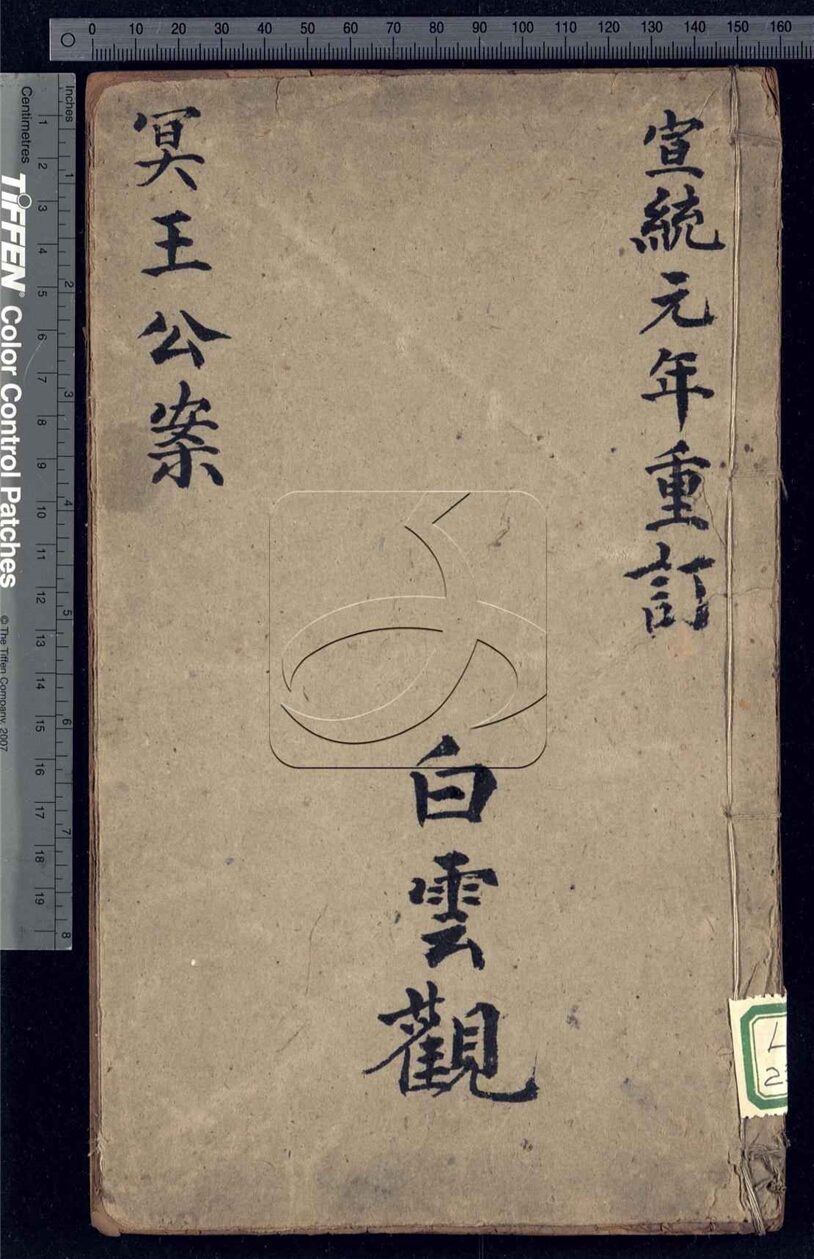 0 10 20 30 40 50 60 70 80 90 100 110 120 130 140 150 160
宣統元年重訂
白雲觀
冥王公案
Inches 1 2 3 4 5 6 7 8
Centimetres 1 2 3 4 5 6 7 8 9 10 11 12 13 14 15 16 17 18 19
TIFFEN® Color Control Patches © The Tiffen Company, 2007
L